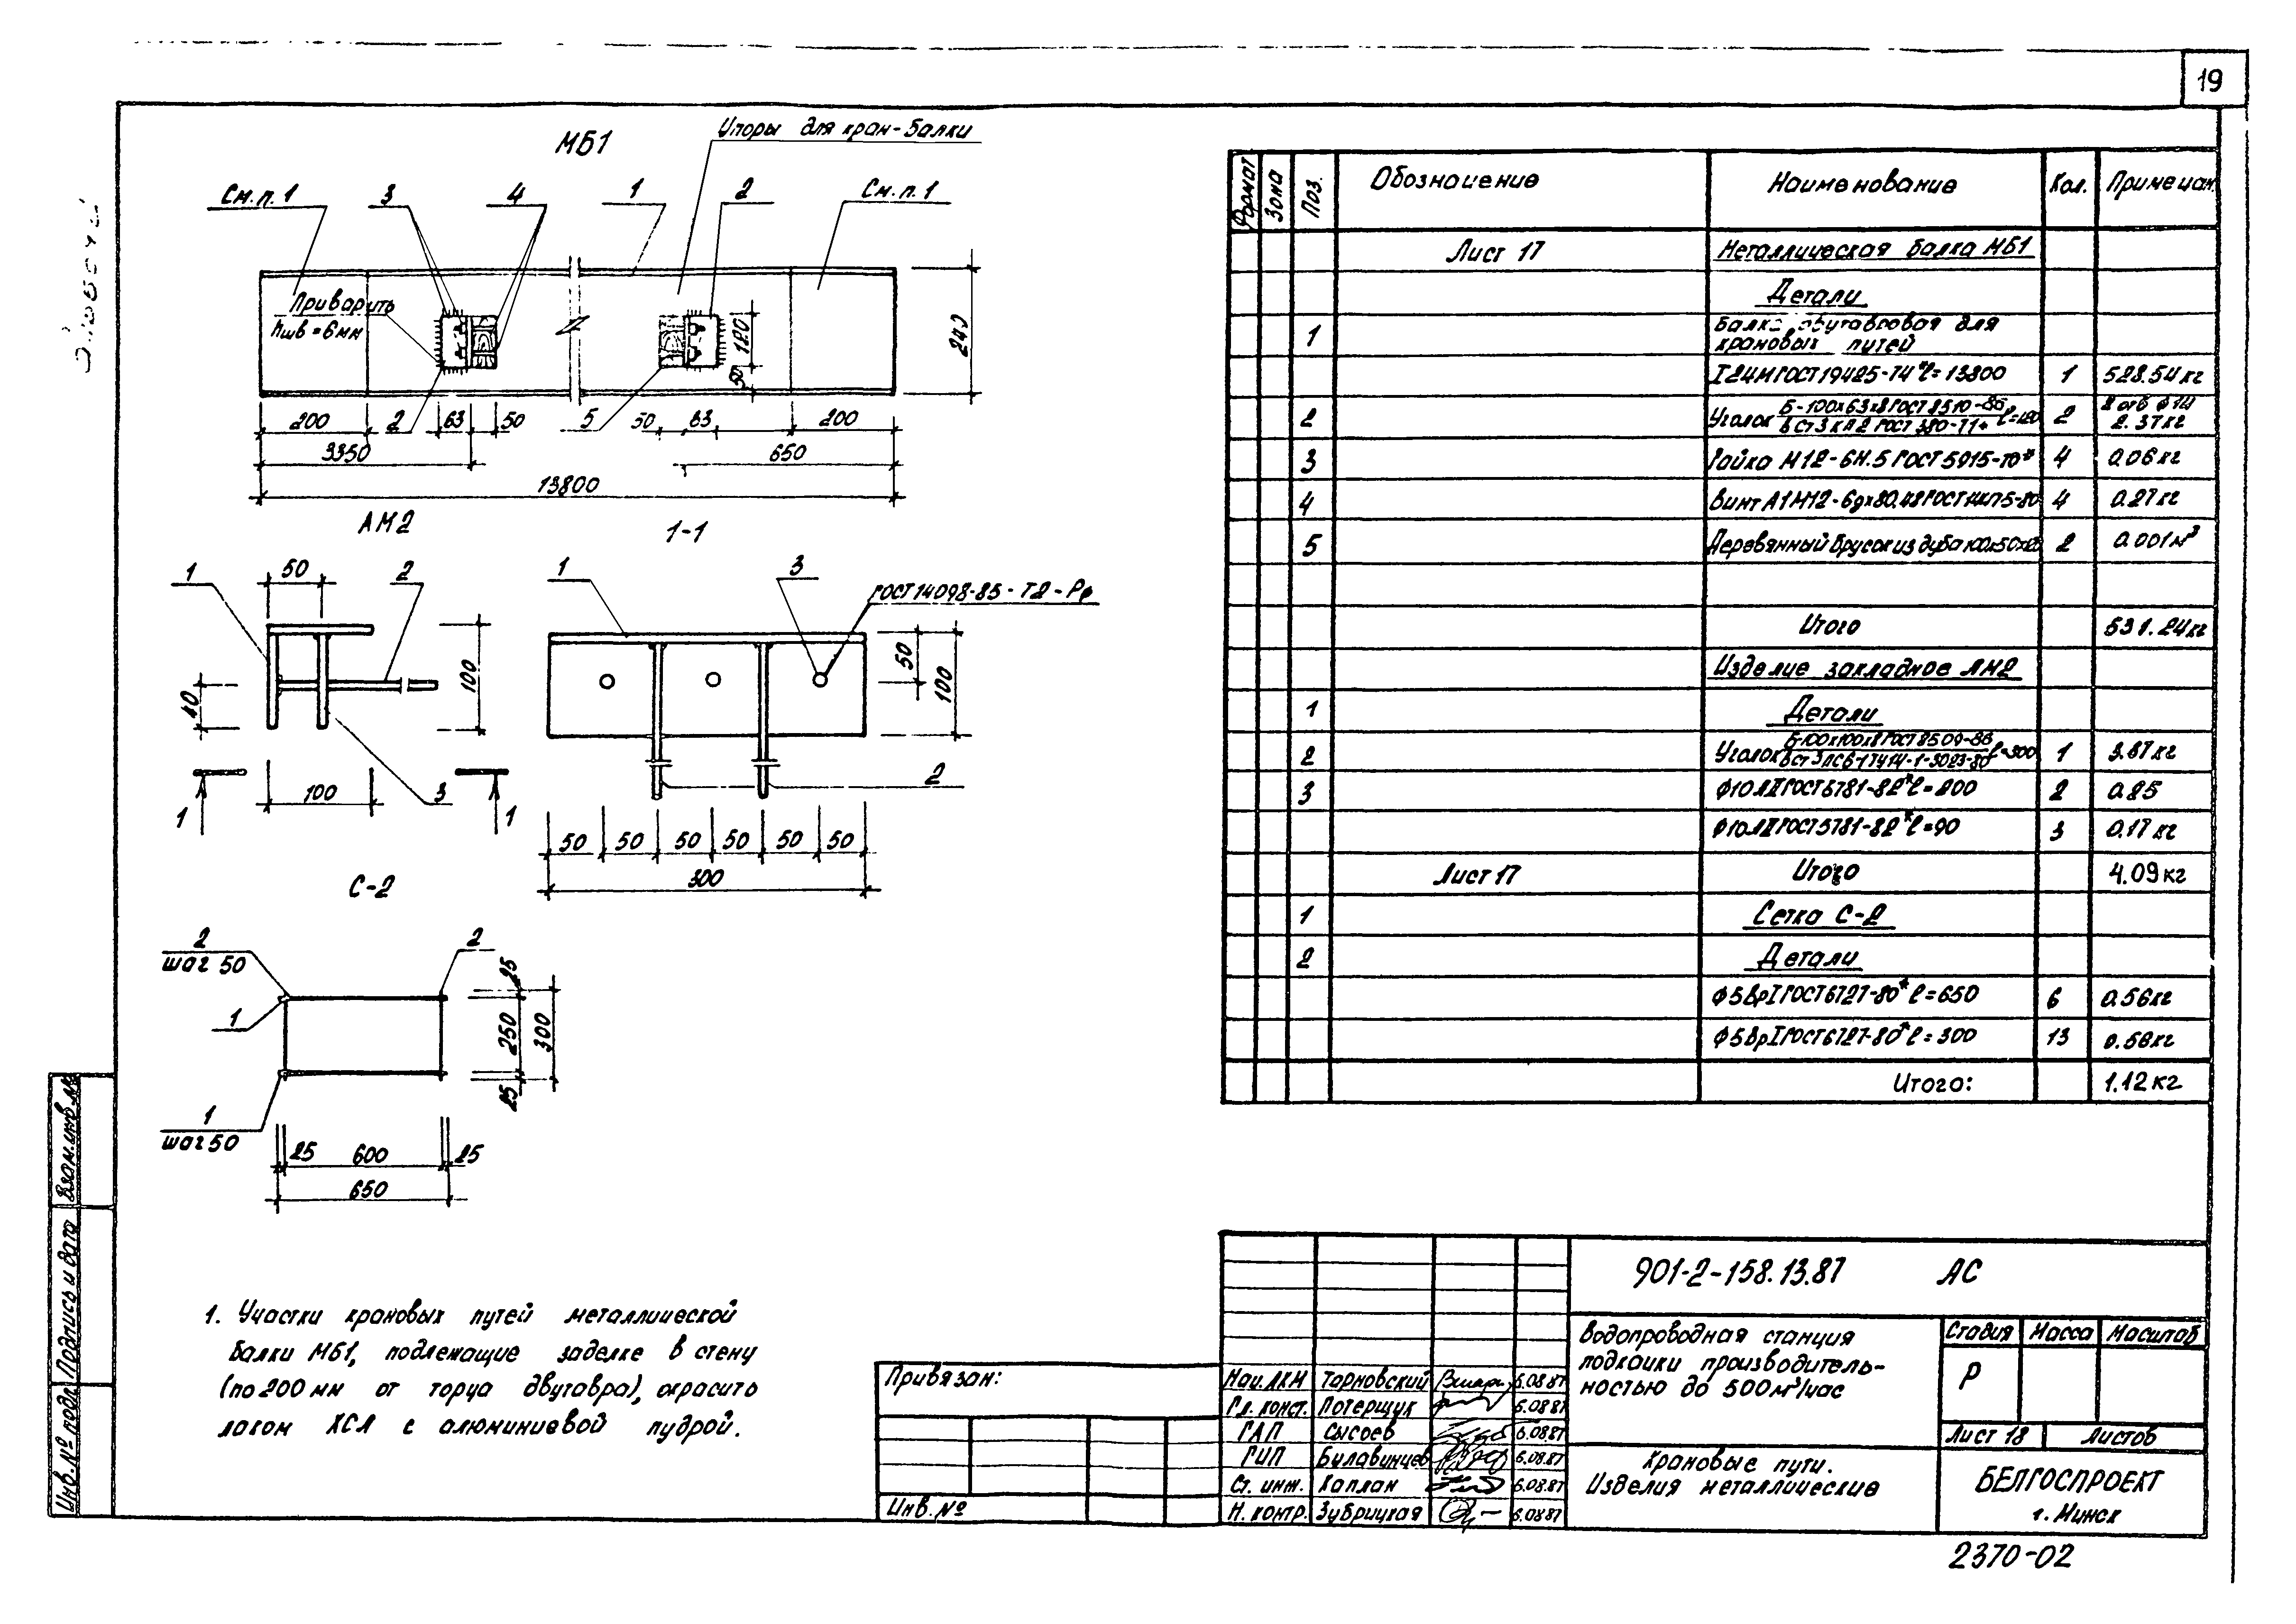 19
МБ1
Упоры для кран-балки
См. п. 1
3
4
1
2
См. п. 1
Приварить
hшв = 6мм
120
50
240
200
2
63
50
5
50
63
200
3350
650
13800
АМ2
1
50
2
100
40
3
100
1
1
1-1
1
3
ГОСТ 14098-85-Т2-Рф
50
100
2
50 50 50 50 50 50
300
С-2
2
шаг 50
2
1
25
250
300
25
1
шаг 50
25 600 25
650
1. Участки крановых путей металлической
балки МБ1, подлежащие заделке в стену
(по 200 мм от торца двутавра), окрасить
лаком ХСЛ с алюминиевой пудрой.
Формат Зона Поз. Обозначение Наименование Кол. Примечан.
Лист 17 Металлическая балка МБ1
Детали
1 Балка двутавровая для
крановых путей
I24М ГОСТ 19425-74* ℓ=13800 1 528.54 кг
2 Уголок Б-100х63х8 ГОСТ 8510-86 / ВСт3кп2 ГОСТ 380-71* ℓ=120 2 2 отв ф14 2.37кг
3 Гайка М12-6Н.5 ГОСТ 5915-70* 4 0.06 кг
4 Винт А1М12-6gх80.48 ГОСТ 4 0.27 кг
5 Деревянный брусок из дуба 100х50х120 2 0.001 м³
Итого 531.24кг
Изделие закладное АМ2
1 Детали
2 Уголок Б-100х100х8 ГОСТ 8509-86 / ВСт3пс6-1 ТУ14-1-3023-80 ℓ=300 1 3.67кг
3 Ф10АII ГОСТ 5781-82* ℓ=200 2 0.25
Ф10АII ГОСТ 5781-82* ℓ=90 3 0.17 кг
Лист 17 Итого 4.09 кг
1 Сетка С-2
2 Детали
Ф5ВрI ГОСТ 6727-80* ℓ=650 6 0.56кг
Ф5ВрI ГОСТ 6727-80* ℓ=300 13 0.56кг
Итого: 1.12 кг
Взам. инв. №
Подпись и дата
Инв. № подл.
Привязан:
Инв. №
901-2-158.13.87 АС
Водопроводная станция
подкачки производитель-
ностью до 500м³/час
Стадия Масса Масштаб
Р
Лист 18 Листов
Нач. АКМ Тарновский 5.08.87
Гл. конст. Потерщук 5.08.87
ГАП Сысоев 6.08.87
ГИП Билавинцев 6.08.87
Ст. инж. Каплан 6.08.87
Н. контр. Зубрицкая 6.08.87
Крановые пути.
Изделия металлические
БЕЛГОСПРОЕКТ
г. Минск
2370-02